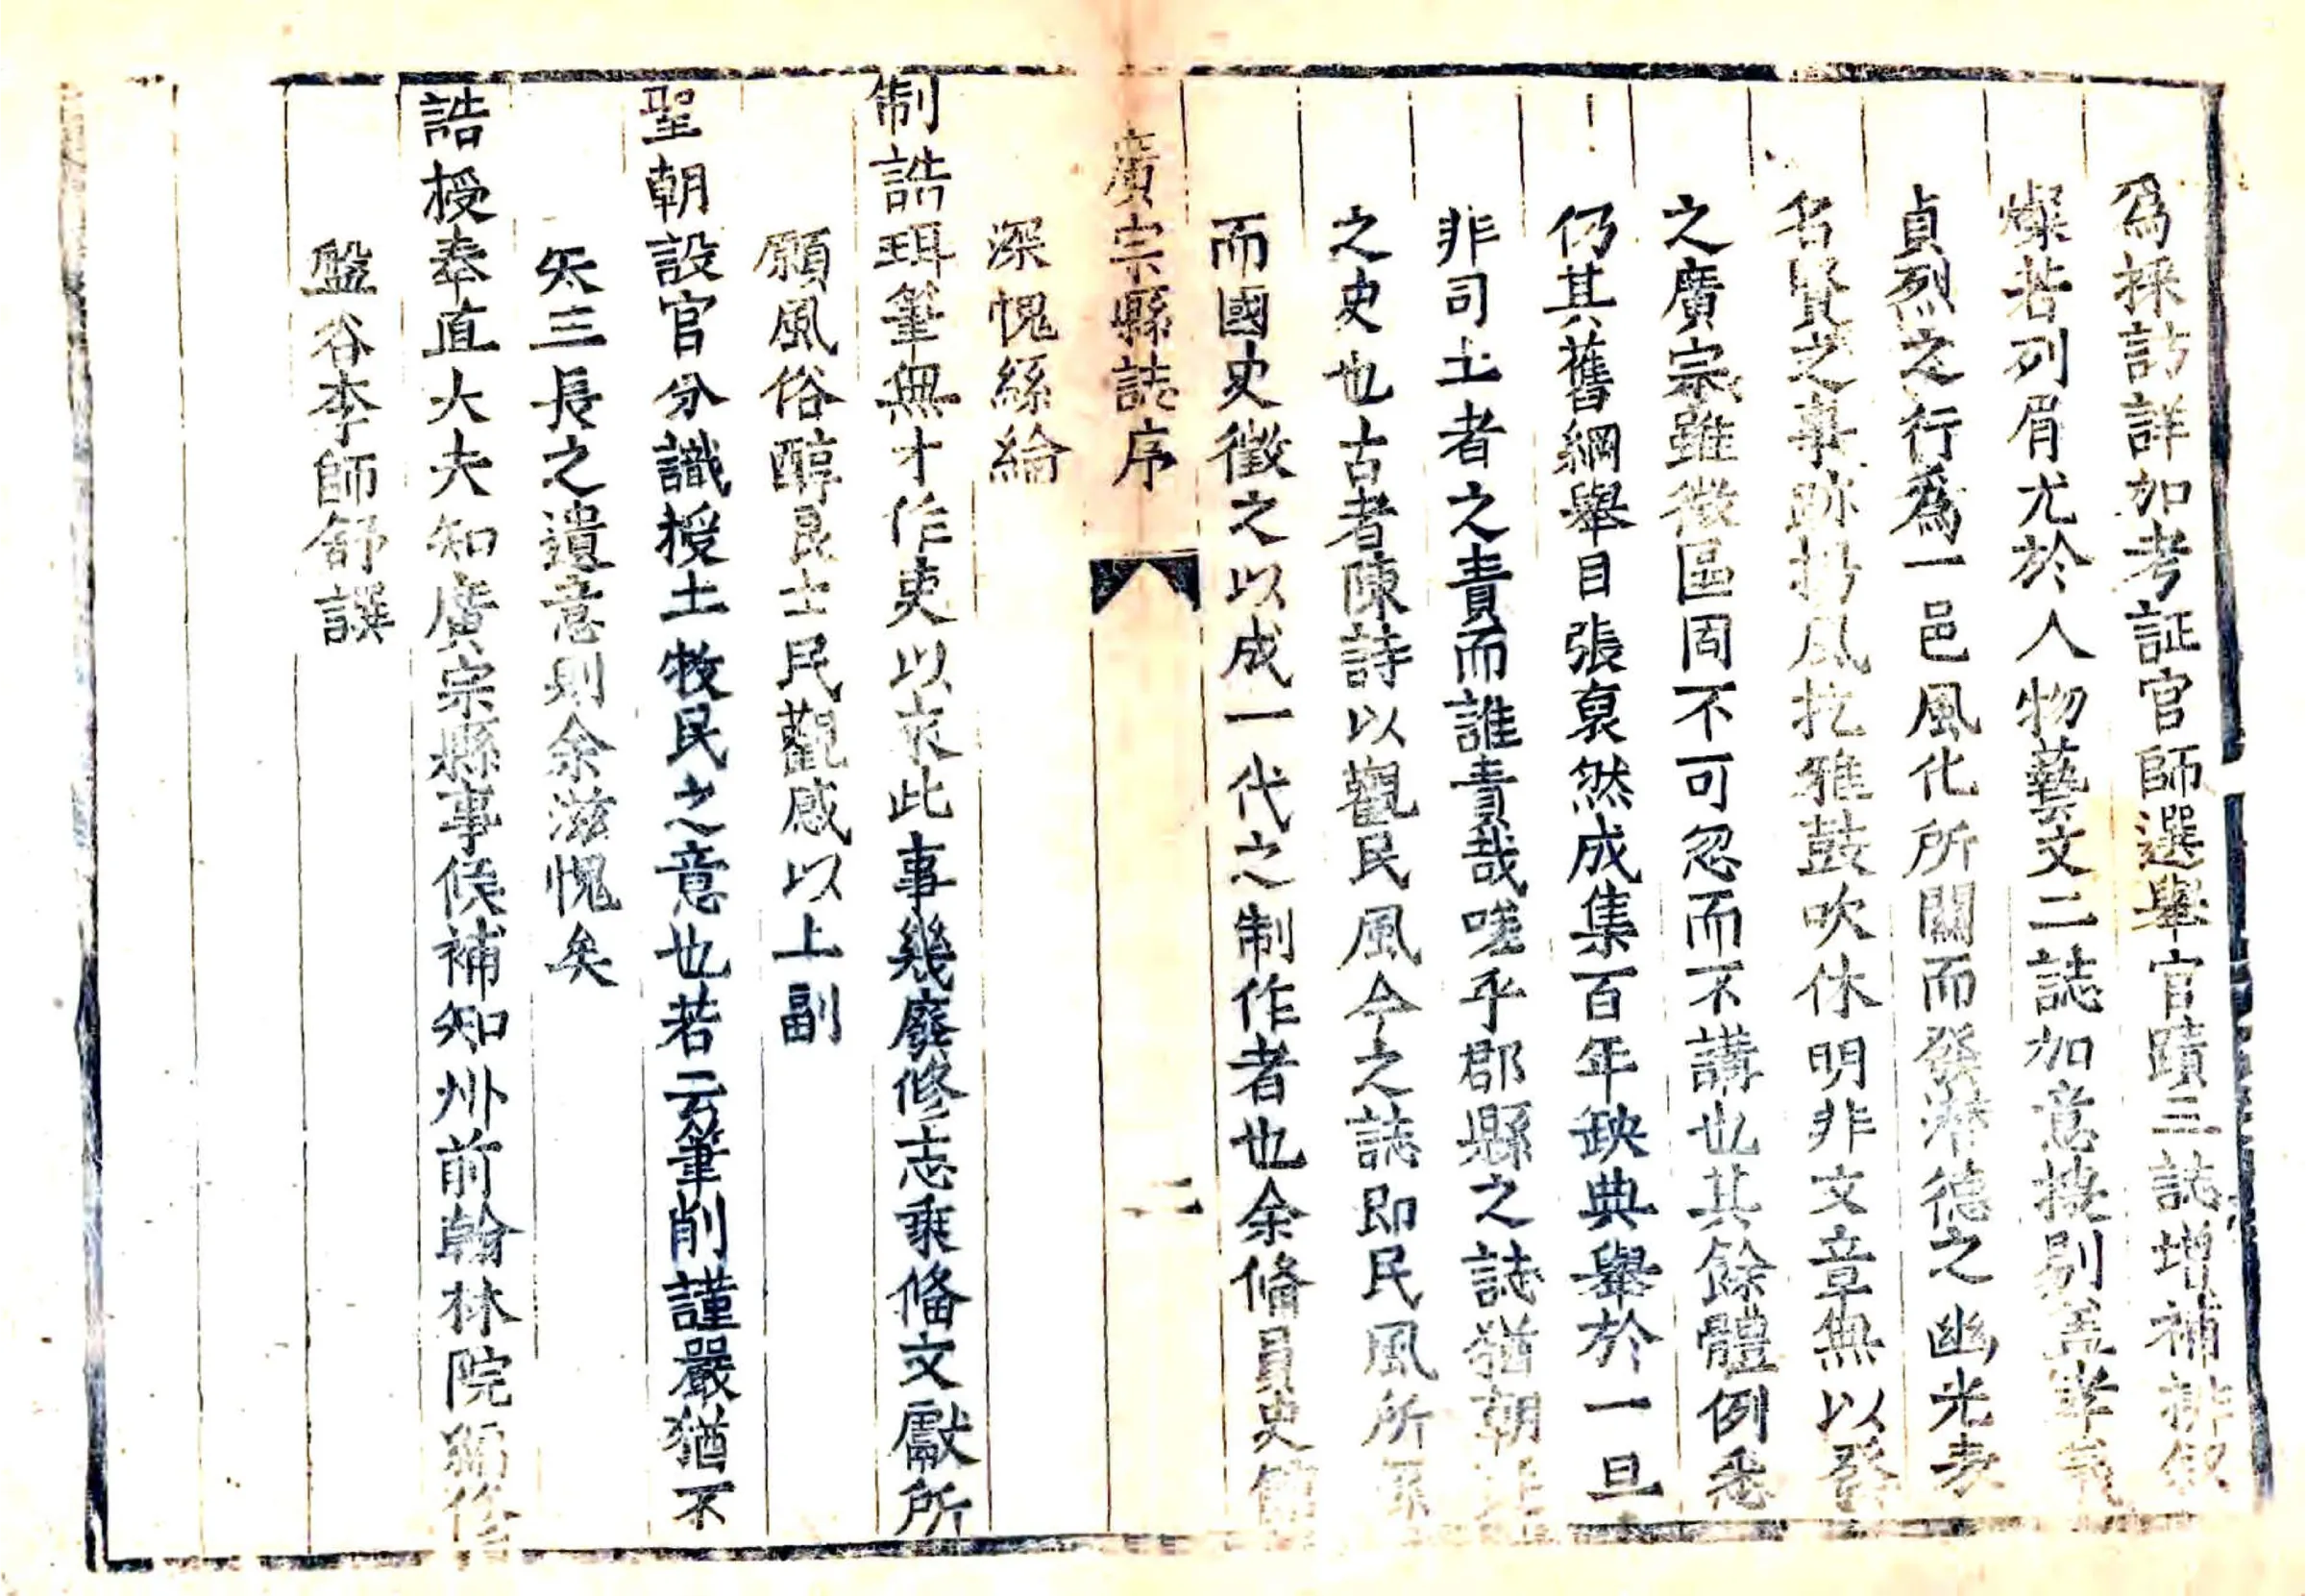 為採訪詳加考証官師選舉官蹟三誌增補排叙
燦若列眉尤於人物藝文二誌加意揀剔盖孝義
貞烈之行為一邑風化所關而發潛德之幽光表
名賢之事跡揚風扢雅鼓吹休明非文章無以發
之廣宗雖微區固不可忽而不講也其餘體例悉
仍其舊綱舉目張裒然成集百年缺典舉於一旦
非司土者之責而誰責哉嗟乎郡縣之誌猶朝廷
之史也古者陳詩以觀民風今之誌即民風所係
而國史徵之以成一代之制作者也余俻員史館
廣宗縣誌序
二
深愧絲綸
制誥珥筆無才作吏以來此事幾廢修志乘俻文獻所
願風俗醇良士民觀感以上副
聖朝設官分識授土牧民之意也若云筆削謹嚴猶不
失三長之遺意則余滋愧矣
誥授奉直大夫知廣宗縣事候補知州前翰林院編修
盤谷李師舒譔